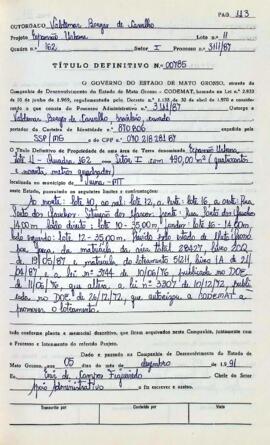 PAG. 113
OUTORGADO Valdemar Borges de Carvalho
Projeto Expansão Urbana Lote n.o 11
Quadra n.o 162 Setor I Processo n.o 3111/87
TÍTULO DEFINITIVO N.o 00785
O GOVERNO DO ESTADO DE MATO GROSSO, através da
Companhia de Desenvolvimento do Estado de Mato Grosso - CODEMAT, baseado na Lei n.o 2.833
de 10 de junho de 1.969, regulamentada pelo Decreto n.o 1.138 de 30 de abril de 1.970 e considerando
o que consta do Processo Administrativo n.o 3.111/87 outorga a
Valdemar Borges de Carvalho, brasileiro, casado
portador da Carteira de Identidade n.o 870.806
SSP/MG e do CPF n.o 010.218.281.87
o Título Definitivo de Propriedade de uma área de Terra denominada Expansão Urbana
lote 11 - Quadra 162 Setor I com 490,00 m² (quatrocentos
e noventa metros quadrados)
localizada no município de Juína - MT
neste Estado, possuindo os seguintes limites e confrontações:
Ao norte: lote 10, ao sul: lote 12, a leste: lote 16, a oeste: Rua
14,00 m lado direito: lote 10 - 35,00 m fundos: lote 16 - 14,00 m
lado esquerdo: lote 12 - 35,00 m.
19/05/87 e matrícula do loteamento 51211, livro 1A de 21/
04/87 e a lei n.o 3744 de 10/06/76 publicada no DOE
de 11/06/76, que altera a lei n.o 3307 de 18/12/72, publicada
no DOE de 26/12/72, que autorizou a CODEMAT a
promover o loteamento.
tudo conforme planta e memorial descritivo, que ficam arquivados nesta Companhia, juntamente com
o Processo e Interessado do referido Projeto.
Dado e passado na Companhia de Desenvolvimento do Estado
de Mato Grosso, aos 05 dias do mês de dezembro de 1991
Eu de Campos Figueiredo Chefe do Setor
Apoio Administrativo o fiz escrever e assino.
Transcrito por Conferido por Visto